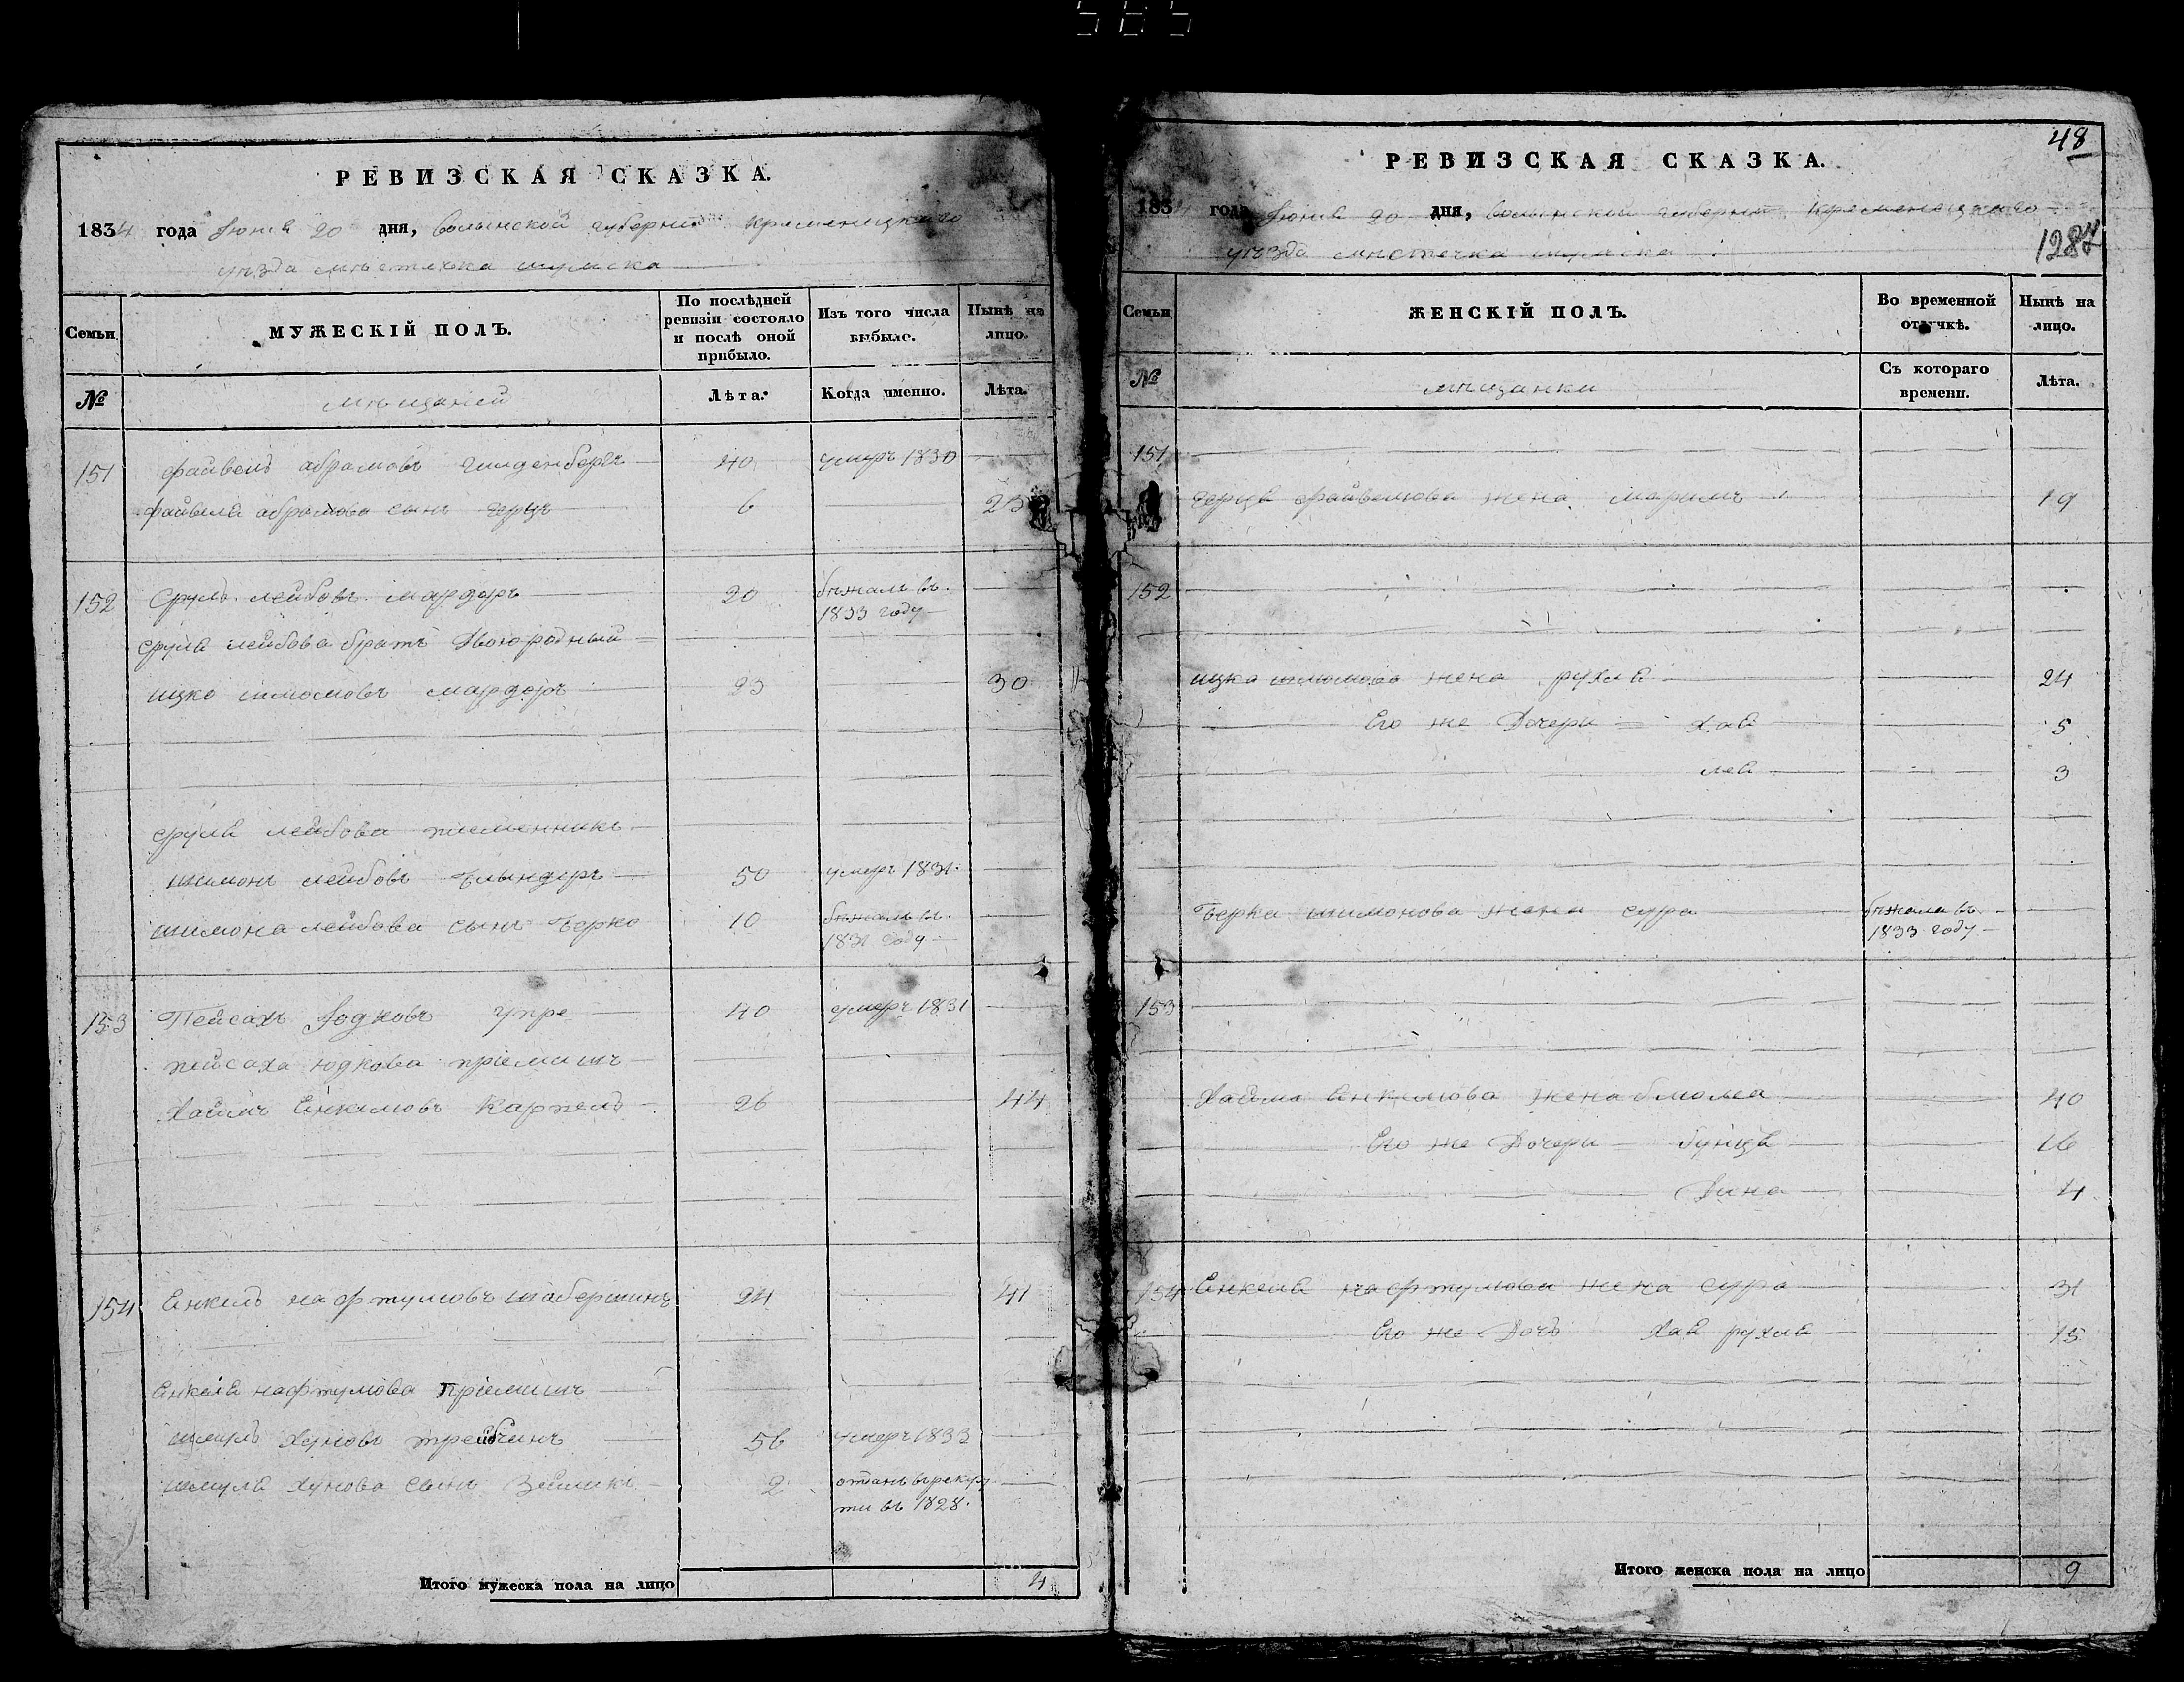 585
РЕВИЗСКАЯ СКАЗКА.
1834 года Іюня 20 дня, волынской губерніи кременецкаго
уѣзда мѣстечка шумска
Семьи
МУЖЕСКІЙ ПОЛЪ.
По послѣдней ревизіи состояло и послѣ оной прибыло.
Изъ того числа выбыло.
Нынѣ на лицо.
№
мещаней
Лѣта.
Когда именно.
Лѣта.
151 файвель абрамовъ гинденбергъ 40 умеръ 1830
файвеля абрамова сынъ герцъ 6 23
152 Сруль лейбовъ мардеръ 20 бѣжалъ въ 1833 году
сруля лейбова братъ двоюродный
ицко шмоловъ мардеръ 23 30
сруля лейбова племенникъ
шимонъ лейбовъ 50 умеръ 1831
шимона лейбова сынъ берко 10 бѣжалъ въ 1831 году
153 Пейсахъ Іодковъ 40 умеръ 1831
пейсаха юдкова пріемишъ
хаимъ Енкеловъ Карпель 26 44
154 Енкель нафтуловъ шаберманъ 24 41
Енкеля нафтулова пріемишъ
шмуль хуновъ 56 умеръ 1833
шмуля хунова сынъ Зейликъ 2 отданъ въ рекруты въ 1828.
Итого мужеска пола на лицо 4
48
РЕВИЗСКАЯ СКАЗКА.
1834 года Іюня 20 дня, волынской губерніи кременецкаго
уѣзда мѣстечка шумска
1287
Семьи
ЖЕНСКІЙ ПОЛЪ.
Во временной отлучкѣ.
Нынѣ на лицо.
№
мещанки
Съ котораго времени.
Лѣта.
151
герца файвелова жена маримъ 19
152
ицка шмолова жена рухля 24
Его же Дочери хая 5
лея 3
берка шимонова жена сура бѣжала въ 1833 году
153
хаима Енкелова жена блюма 40
Его же Дочери бунця 16
Дина 4
154 Енкеля нафтулова жена сура 31
Его же Дочь хая рухля 15
Итого женска пола на лицо 9